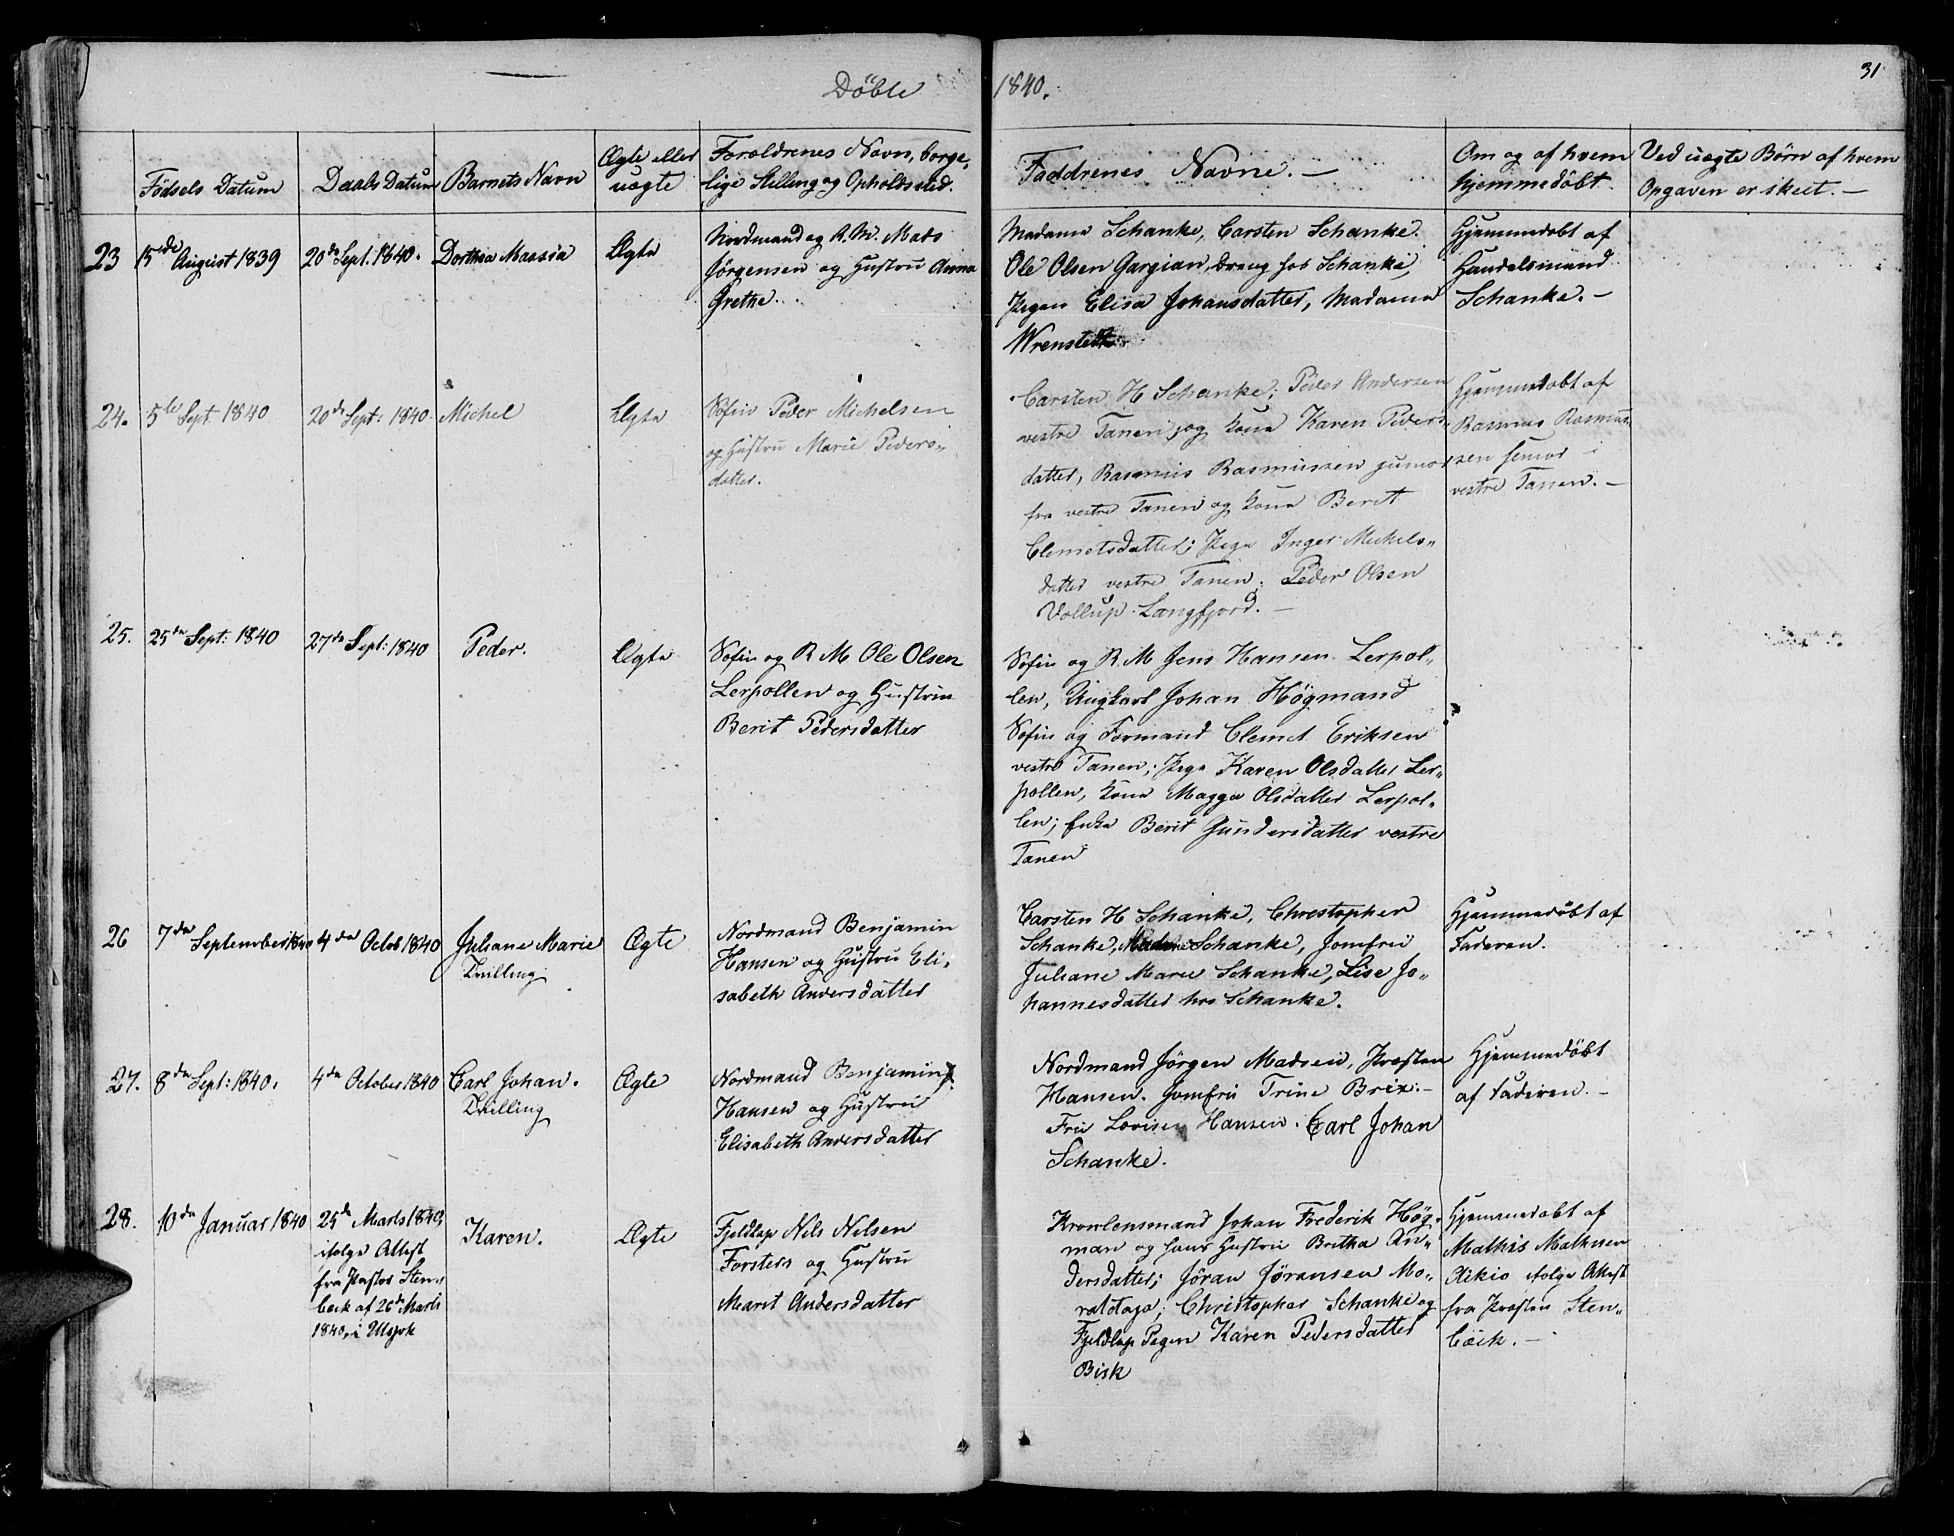 Döbte 1840.
31
Fødsels Datum
Daabs Datum
Barnets Navn
Ægte eller
uægte
Forældrenes Navn, borge,
lige Stilling og Opholdssted.
Faddrenes Navne. —
Om og af hvem
hjemmedöbt.
Ved uægte Børn af hvem
Opgaven er skeet. —
23
15de August 1839
20de Sept. 1840.
Dorthea Massia
Ægte
Nordmand og R. M. Mads
Jörgensen og Hustru Anna
Grethe.
Madame Schanke, Carsten Schanke.
Ole Olsen Gargian, dreng hos Schanke,
Pigen Elisa Johansdatter, Madame
Wrenstedt
Hjemmedøbt af
Handelsmand
Schanke. —
24.
5te Sept. 1840
20de Sept: 1840
Michel
Ægte
Søfin Peder Michelsen
og Hustru Marie Peders-
datter.
Carsten H Schanke; Peder Andersen
vestre Tanen og kona Karen Peders-
datter, Rasmus Rasmussen junior
fra vestre Tanen og kona Berit
Clemetsdatter; Pige Inger Mickels-
datter vestre Tanen; Peder Olsen
Vollup Langfjord. —
Hjemmedøbt af
Rasmus Rasmus-
sen senior i
vestre Tanen. —
25.
25de Sept: 1840
27de Sept: 1840
Peder.
Ægte
Søfin og R M Ole Olsen
Lerpollen og Hustru
Berit Pedersdatter
Søfin og R. M Jens Hansen Lerpol-
len, Ungkarl Johan Högmand
Søfin og Formand Clemet Eriksen
vestre Tanen; Pige Karen Olsdatter Ler-
pollen, kona Magga Olsdatter Lerpol-
len; Enke Berit Gundersdatter vestre
Tanen
26
7de September 1840
4de Octob 1840
Juliane Marie
Tvilling
Ægte
Nordmand Benjamin
Hansen og Hustru Eli-
sabeth Andersdatter
Carsten H Schanke, Christopher
Schanke, Madame Schanke, Jomfru
Juliane Marie Schanke, Lise Jo-
hannesdatter hos Schanke.
Hjemmedöbt af
Faderen.
27.
8de Sept: 1840.
4de October 1840
Carl Johan.
Tvilling
Ægte
Nordmand Benjamin
Hansen og Hustru
Elisabeth Andersdatter
Nordmand Jörgen Madsen, Præsten
Hansen. Jomfru Trine Brix. —
Fru Lovisen Hansen. Carl Johan
Schanke.
Hjemmedöbt
af Faderen. —
28.
10de Januar 1840
25de Marts 1840,
ifølge Attest
fra Pastor Sten-
beck af 26de Marts
1840, i Utsjok
Karen.
Ægte
Fjeldlap Nils Nilsen
Forsters og Hustru
Marit Andersdatter
Kronlensmand Johan Frederik Hög-
man og hans Hustru Britha An-
dersdatter; Jöran Jöransen Mo-
rattaja; Christopher Schanke og
Fjeldlap Pigen Karen Pedersdatter
Bisk
Hjemmedøbt af
Mathis Mathisen
Aikio ifølge Attest
fra Præsten Sten-
bäck. —